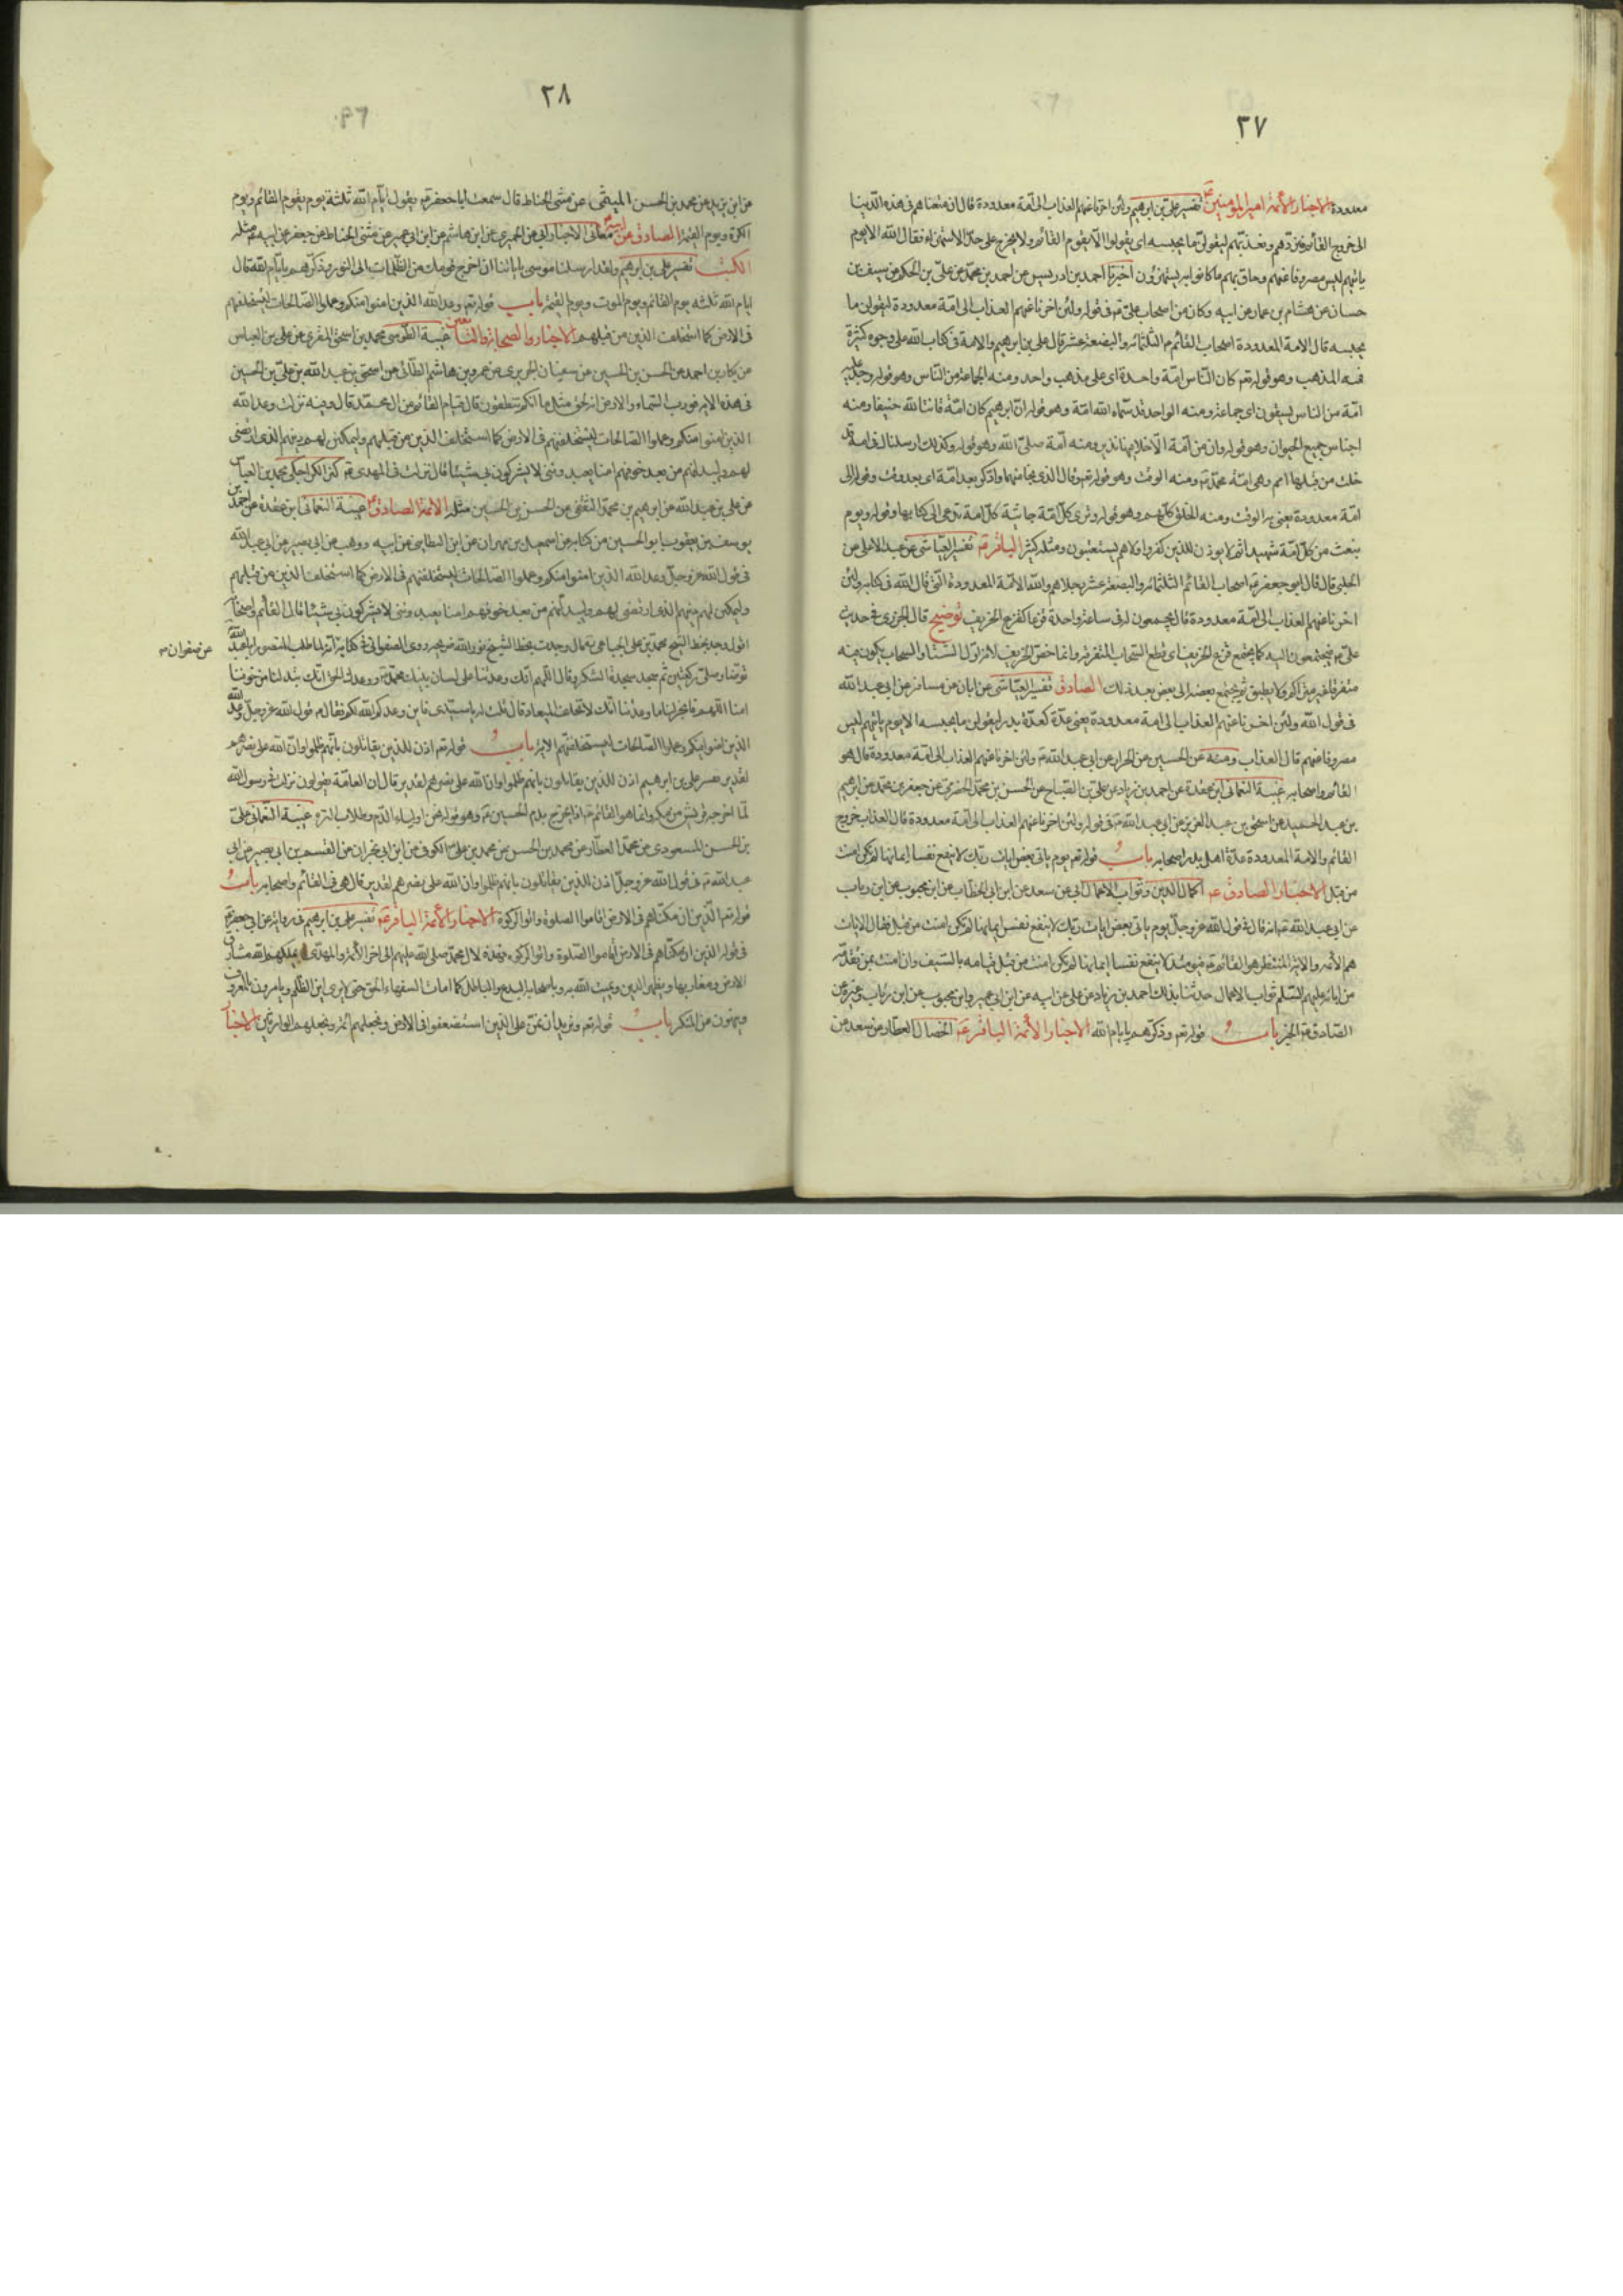 ٢٧
معدودة الاخبار الأئمة امير المؤمنين ع تفسير علي بن ابرهيم ولئن اخرنا عنهم العذاب الى امة معدودة قال ان متعناهم في هذه الدنيا
الى خروج القائم فنردهم ونعذبهم ليقولن ما يحبسه اى يقولوا الا يقوم القائم ولا يخرج على حد الاستهزاء فقال الله الا يوم
ياتيهم ليس مصروفا عنهم وحاق بهم ما كانوا به يستهزؤن اخبرنا احمد بن ادريس عن احمد بن محمد عن علي بن الحكم عن سيف بن
حسان عن هشام بن عمار عن ابيه وكان من اصحاب علي ع في قوله ولئن اخرنا عنهم العذاب الى امة معدودة ليقولن ما
يحبسه قال الامة المعدودة اصحاب القائم م الثلثمائة والبضعة عشر قال علي بن ابرهيم والامة في كتاب الله على وجوه كثيرة
فمنه المذهب وهو قوله تع كان الناس امة واحدة اى على مذهب واحد ومنه الجماعة من الناس وهو قوله وجد عليه
امة من الناس يسقون اى جماعة ومنه الواحد قد سماه الله امة وهو قوله ان ابرهيم كان امة قانتا لله حنيفا ومنه
اجناس جميع الحيوان وهو قوله وان من امة الا خلا فيها نذير ومنه امة محمد صلى الله وهو قوله وكذلك ارسلناك في امة قد
خلت من قبلها امم وهي امة محمد ص ومنه الوقت وهو قوله تع وقال الذى نجا منهما وادكر بعد امة اى بعد وقت وقوله الى
امة معدودة يعنى به الوقت ومنه الخلق كلهم وهو قوله وترى كل امة جاثية كل امة تدعى الى كتابها وقوله ويوم
نبعث من كل امة شهيدا ثم لا يوذن للذين كفروا ولا هم يستعتبون ومثله كثير الباقر ع تفسير العياشى عن عبد الاعلى عن
الحلبي قال قال ابو جعفر ع اصحاب القائم الثلثمائة والبضعة عشر رجلا هم والله الامة المعدودة التى قال الله في كتابه ولئن
اخرنا عنهم العذاب الى امة معدودة قال يجمعون له في ساعة واحدة قزعا كقزع الخريف توضيح قال الجزرى في حديث
علي ع فيجتمعون اليه كما يجتمع قزع الخريف اى قطع السحاب المتفرقة وانما خص الخريف لانه اول الشتاء والسحاب يكون فيه
متفرقا غير متراكم ولا مطبق ثم يجتمع بعضه الى بعض بعد ذلك الصادق تفسير العياشى عن ابان عن مسافر عن ابي عبد الله
في قول الله ولئن اخرنا عنهم العذاب الى امة معدودة يعنى عدة كعدة بدر ليقولن ما يحبسه الا يوم ياتيهم ليس
مصروفا عنهم قال العذاب ومنه عن الحسين عن الخراز عن ابي عبد الله ع ولئن اخرنا عنهم العذاب الى امة معدودة قال هو
القائم واصحابه غيبة النعمانى ابن عقدة عن احمد بن زياد عن علي بن الصباح عن الحسن بن محمد الحضرمي عن جعفر بن محمد عن ابرهيم
بن عبد الحميد عن اسحق بن عبد العزيز عن ابي عبد الله ع في قوله ولئن اخرنا عنهم العذاب الى امة معدودة قال العذاب خروج
القائم والامة المعدودة عدة اهل بدر اصحابه باب قوله تع يوم ياتى بعض ايات ربك لا ينفع نفسا ايمانها لم تكن امنت
من قبل الاخبار الصادق ع اكمال الدين وثواب الاعمال ابي عن سعد عن ابن ابي الخطاب عن ابن محبوب عن ابن رياب
عن ابي عبد الله ع انه قال في قول الله عز وجل يوم ياتى بعض ايات ربك لا ينفع نفسا ايمانها لم تكن امنت من قبل فقال الايات
هم الأئمة والاية المنتظر هو القائم ع فيومئذ لا ينفع نفسا ايمانها لم تكن امنت من قبل قيامه بالسيف وان امنت بمن تقدمه
من ابائه عليهم السلم ثواب الاعمال حدثنا بذلك احمد بن زياد عن علي عن ابيه عن ابن ابي عمير وابن محبوب عن ابن رياب وغيره عن
الصادق ع الخبر باب قوله تع وذكرهم بايام الله الاخبار الأئمة الباقر ع الخصال العطار عن سعد عن
٢٨
عن ابن يزيد عن محمد بن الحسن الميثمى عن مثنى الحناط قال سمعت ابا جعفر ع يقول ايام الله ثلثة يوم يقوم القائم ويوم
الكرة ويوم القيمة الصادق عن ابيه معانى الاخبار ابي عن الحميرى عن ابن هاشم عن ابن ابي عمير عن مثنى الحناط عن جعفر عن ابيه ع مثله
الكتب تفسير علي بن ابرهيم ولقد ارسلنا موسى باياتنا ان اخرج قومك من الظلمات الى النور وذكرهم بايام الله قال
ايام الله ثلثه يوم القائم ويوم الموت ويوم القيمة باب قوله تع وعد الله الذين امنوا منكم وعملوا الصالحات ليستخلفنهم
في الارض كما استخلف الذين من قبلهم الاخبار الصحابة والتابعين غيبة الطوسى محمد بن اسحق المقرى عن علي بن العباس
عن بكار بن احمد عن الحسن بن الحسين عن سفيان الجريرى عن عمرو بن هاشم الطائى عن اسحق بن عبد الله بن علي بن الحسين
في هذه الاية فورب السماء والارض انه لحق مثل ما انكم تنطقون قال قيام القائم من ال محمد قال وفيه نزلت وعد الله
الذين امنوا منكم وعملوا الصالحات ليستخلفنهم في الارض كما استخلف الذين من قبلهم وليمكنن لهم دينهم الذى ارتضى
لهم وليبدلنهم من بعد خوفهم امنا يعبدوننى لا يشركون بي شيئا قال نزلت في المهدى ع كنز الكراجكى محمد بن العباس
عن علي بن عبد الله عن ابرهيم بن محمد الثقفى عن الحسن بن الحسين مثله الائمة الصادق ع غيبة النعمانى ابن عقدة عن احمد بن
يوسف بن يعقوب ابو الحسين من كتابه عن اسمعيل بن مهران عن ابن البطاينى عن ابيه ووهب عن ابي بصير عن ابي عبد الله
في قول الله عز وجل وعد الله الذين امنوا منكم وعملوا الصالحات ليستخلفنهم في الارض كما استخلف الذين من قبلهم
وليمكنن لهم دينهم الذى ارتضى لهم وليبدلنهم من بعد خوفهم امنا يعبدوننى لا يشركون بي شيئا قال القائم واصحابه
اقول وجد بخط الشيخ محمد بن علي الجباعى ره قال وجدت بخط الشهيد نور الله ضريحه روى الصفوانى في كتابه انه لما طلب المنصور ابا عبد الله
عن صفوان
توضا وصلى ركعتين ثم سجد سجدة الشكر وقال اللهم انك وعدتنا على لسان نبيك محمد ص ووعدك الحق انك تبدلنا من خوفنا
امنا اللهم فانجز لنا ما وعدتنا انك لا تخلف الميعاد قال قلت له يا سيدى فاين وعد الله لكم فقال ع قول الله عز وجل وعد الله
الذين امنوا منكم وعملوا الصالحات ليستخلفنهم الاية باب قوله تع اذن للذين يقاتلون بانهم ظلموا وان الله على نصرهم
لقدير تفسير علي بن ابرهيم اذن للذين يقاتلون بانهم ظلموا وان الله على نصرهم لقدير قال ان العامة يقولون نزلت في رسول الله
لما اخرجه قريش من مكة وانما هو القائم ع اذا خرج يطلب بدم الحسين ع وهو قوله نحن اولياء الدم وطلاب الترة غيبة النعمانى علي
بن الحسن المسعودى عن محمد العطار عن محمد بن الحسن عن محمد بن علي الكوفى عن ابن ابي نجران عن القسم بن ابي بصير عن ابي
عبد الله ع في قول الله عز وجل اذن للذين يقاتلون بانهم ظلموا وان الله على نصرهم لقدير قال هي في القائم واصحابه باب
قوله تع الذين ان مكناهم في الارض اقاموا الصلوة واتوا الزكوة الاخبار الأئمة الباقر ع تفسير علي بن ابرهيم في رواية عن ابي جعفر ع
في قوله الذين ان مكناهم في الارض اقاموا الصلوة واتوا الزكوة وهذه لال محمد صلى الله عليهم الى اخر الأئمة والمهدى يملكهم الله مشارق
الارض ومغاربها ويظهر الدين ويميت الله به وباصحابه البدع والباطل كما امات السفهاء الحق حتى لا يرى اين الظلم ويامرون بالمعروف
وينهون عن المنكر باب قوله تع ونريد أن نمن على الذين استضعفوا في الارض ونجعلهم ائمة ونجعلهم الوارثين الاخبار